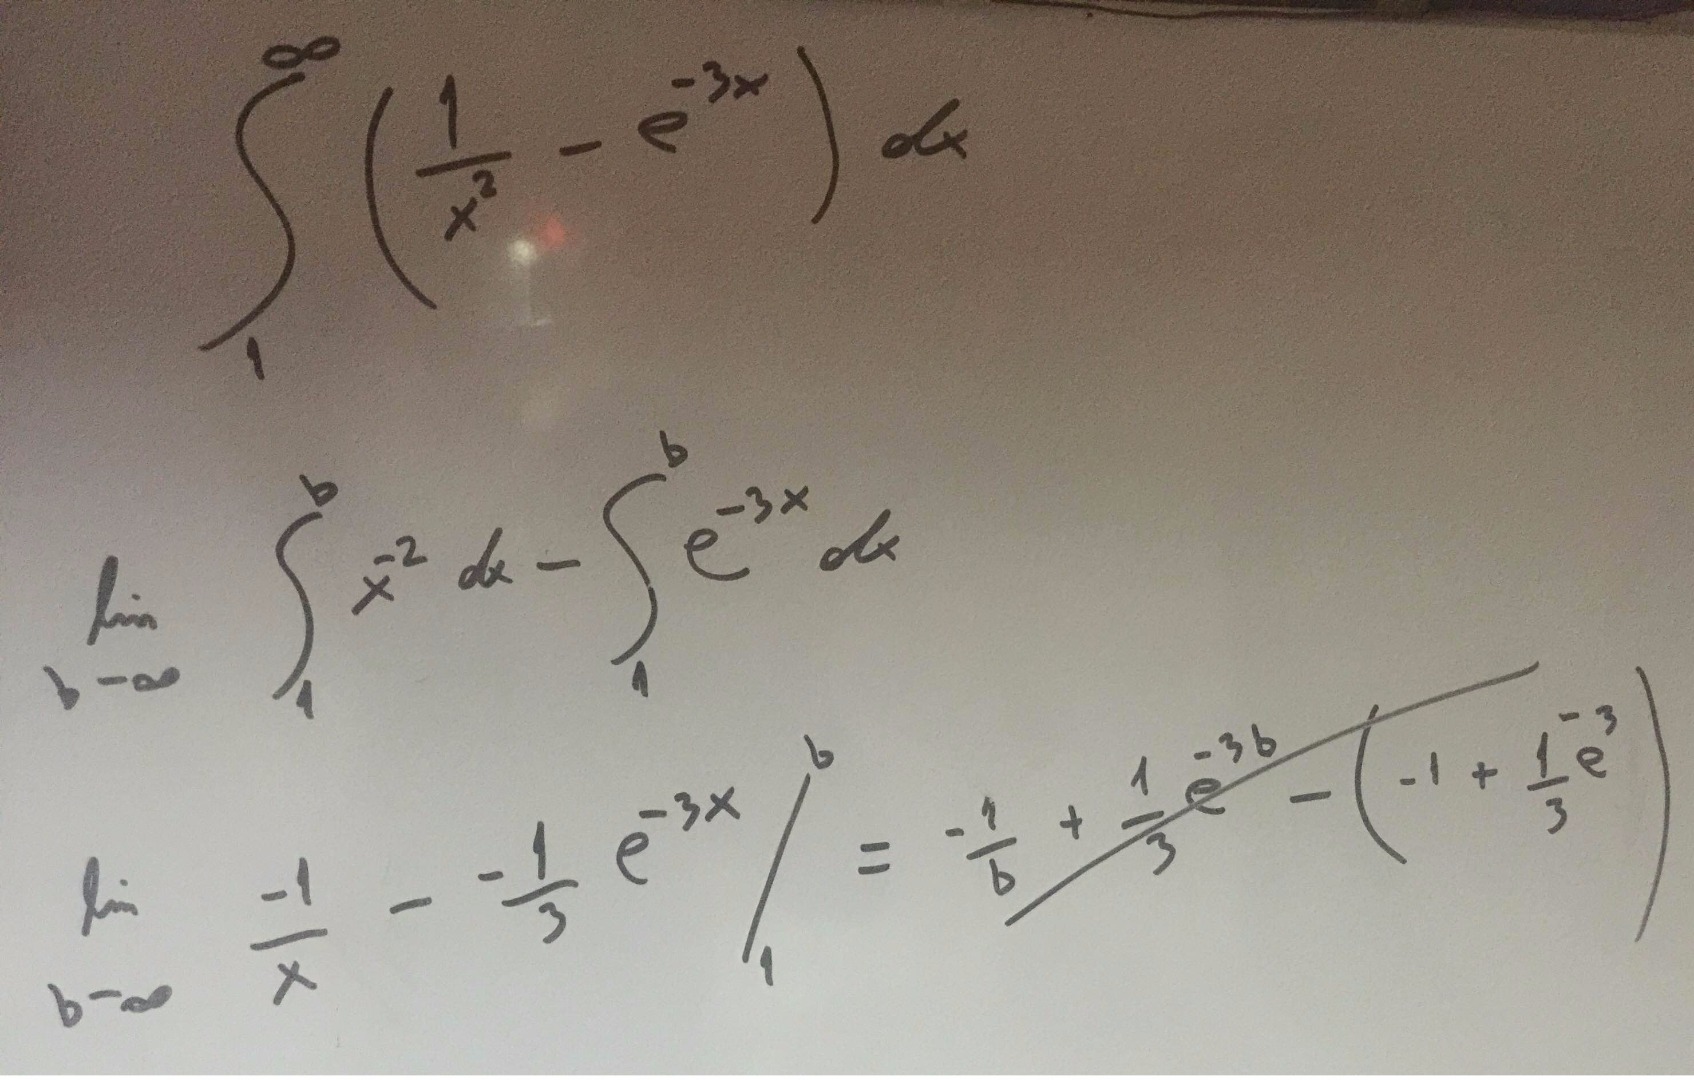 ∫₁^∞ (1/x² − e^(−3x)) dx
lim b→∞ ∫₁^b x^(−2) dx − ∫₁^b e^(−3x) dx
lim b→∞ −1/x − −1/3 e^(−3x) /₁^b = −1/b + 1/3 e^(−3b) − (−1 + 1/3 e^(−3))